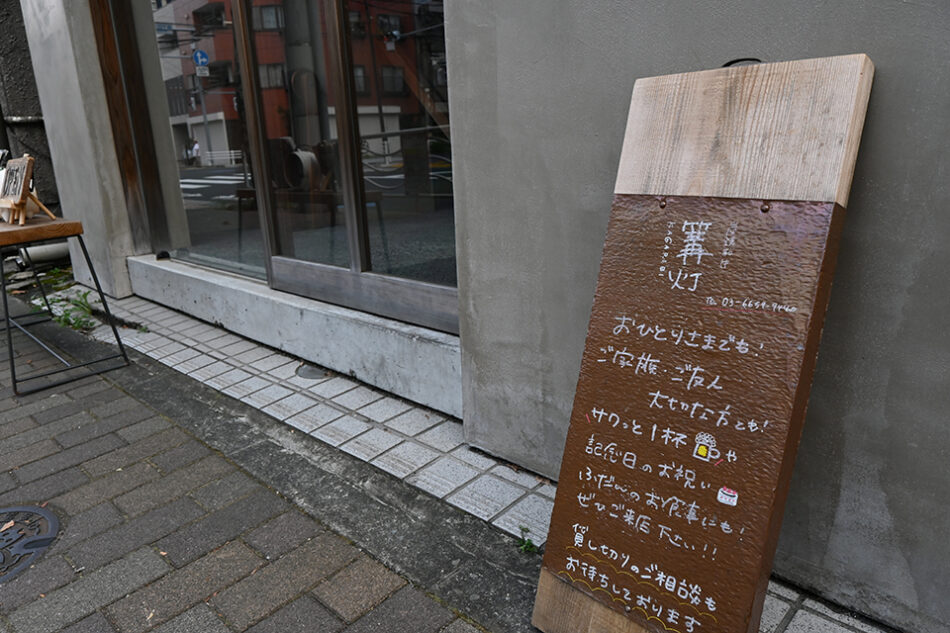 篝灯
TEL 03-6659-9440
おひとりさまでも！
ご家族・ご友人
大切な方とも！
サクッと1杯や
記念日のお祝い
ふだんのお食事にも！
ぜひご来店下さい!!
貸し切りのご相談も
お待ちしております